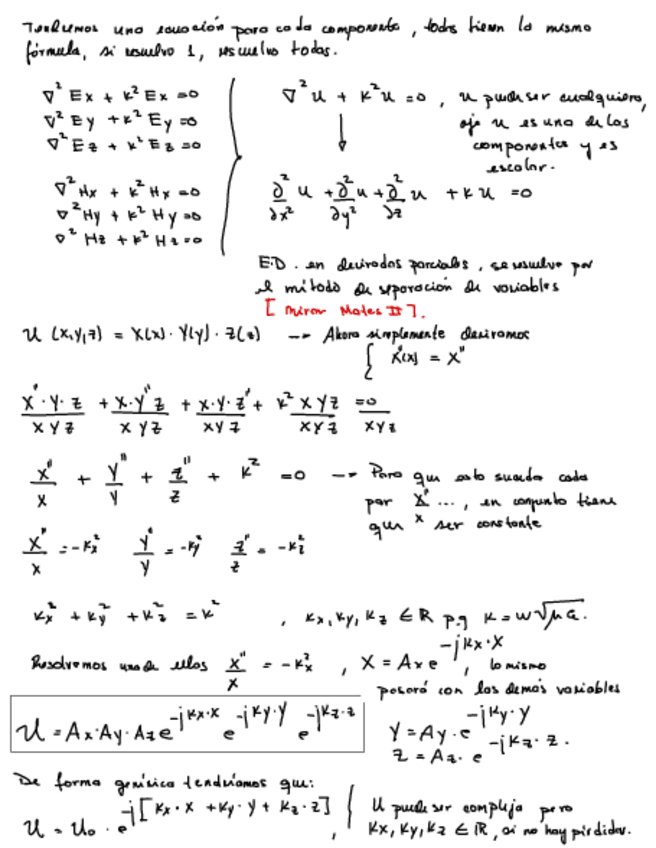 Tendremos una ecuación para cada componente, todas tienen la misma
fórmula, si resuelvo 1, resuelvo todas.
∇² Ex + K² Ex = 0
∇² Ey + K² Ey = 0
∇² Ez + K² Ez = 0
∇² Hx + K² Hx = 0
∇² Hy + K² Hy = 0
∇² Hz + K² Hz = 0
∇² u + K² u = 0, u puede ser cualquiera,
ojo u es una de las
componentes y es
escalar.
∂²/∂x² u + ∂²/∂y² u + ∂²/∂z u + K u = 0
E.D. en derivadas parciales, se resuelve por
el método de separación de variables
[Mirar Mates II].
U (x,y,z) = X(x) · Y(y) · Z(z) → Ahora simplemente derivamos
{ X''(x) = X''
X''·Y·Z/XYZ + X·Y''Z/XYZ + X·Y·Z''/XYZ + K² XYZ/XYZ = 0/XYZ
X''/X + Y''/Y + Z''/Z + K² = 0 → Para que esto suceda cada
par X''/X ..., en conjunto tiene
que ser constante
X''/X = -Kx² Y''/Y = -Ky² Z''/Z = -Kz²
Kx² + Ky² + Kz² = K² , Kx, Ky, Kz ∈ ℝ p.q K = ω√με.
Resolvemos una de ellas X''/X = -Kx² , X = Ax e^(-jKx·X) , lo mismo
pasará con las demás variables
U = Ax·Ay·Az e^(-jKx·X) e^(-jKy·Y) e^(-jKz·z)
Y = Ay·e^(-jKy·Y)
Z = Az·e^(-jKz·z).
De forma genérica tendríamos que:
U = U₀ · e^(-j[Kx·X + Ky·Y + Kz·z]) ,
{ U puede ser compleja pero
Kx, Ky, Kz ∈ ℝ, si no hay pérdidas.